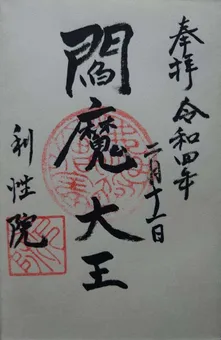 奉拝 令和四年
二月十一日
閻魔大王
利性院